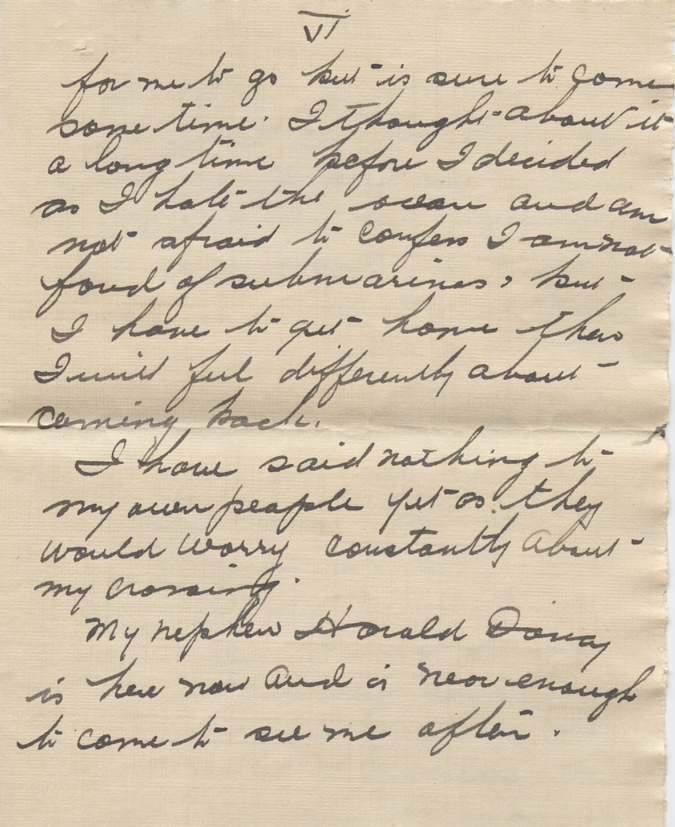 VI
for me to go but is sure to come
some time. I thought about it
a long time before I decided
as I hate the ocean and am
not afraid to confess I am not
fond of submarines, but
I have to get home then
I will feel differently about
coming back.
I have said nothing to
my own people yet as they
would worry constantly about
my crossing.
My nephew Harold
is here now and is near enough
to come to see me often.